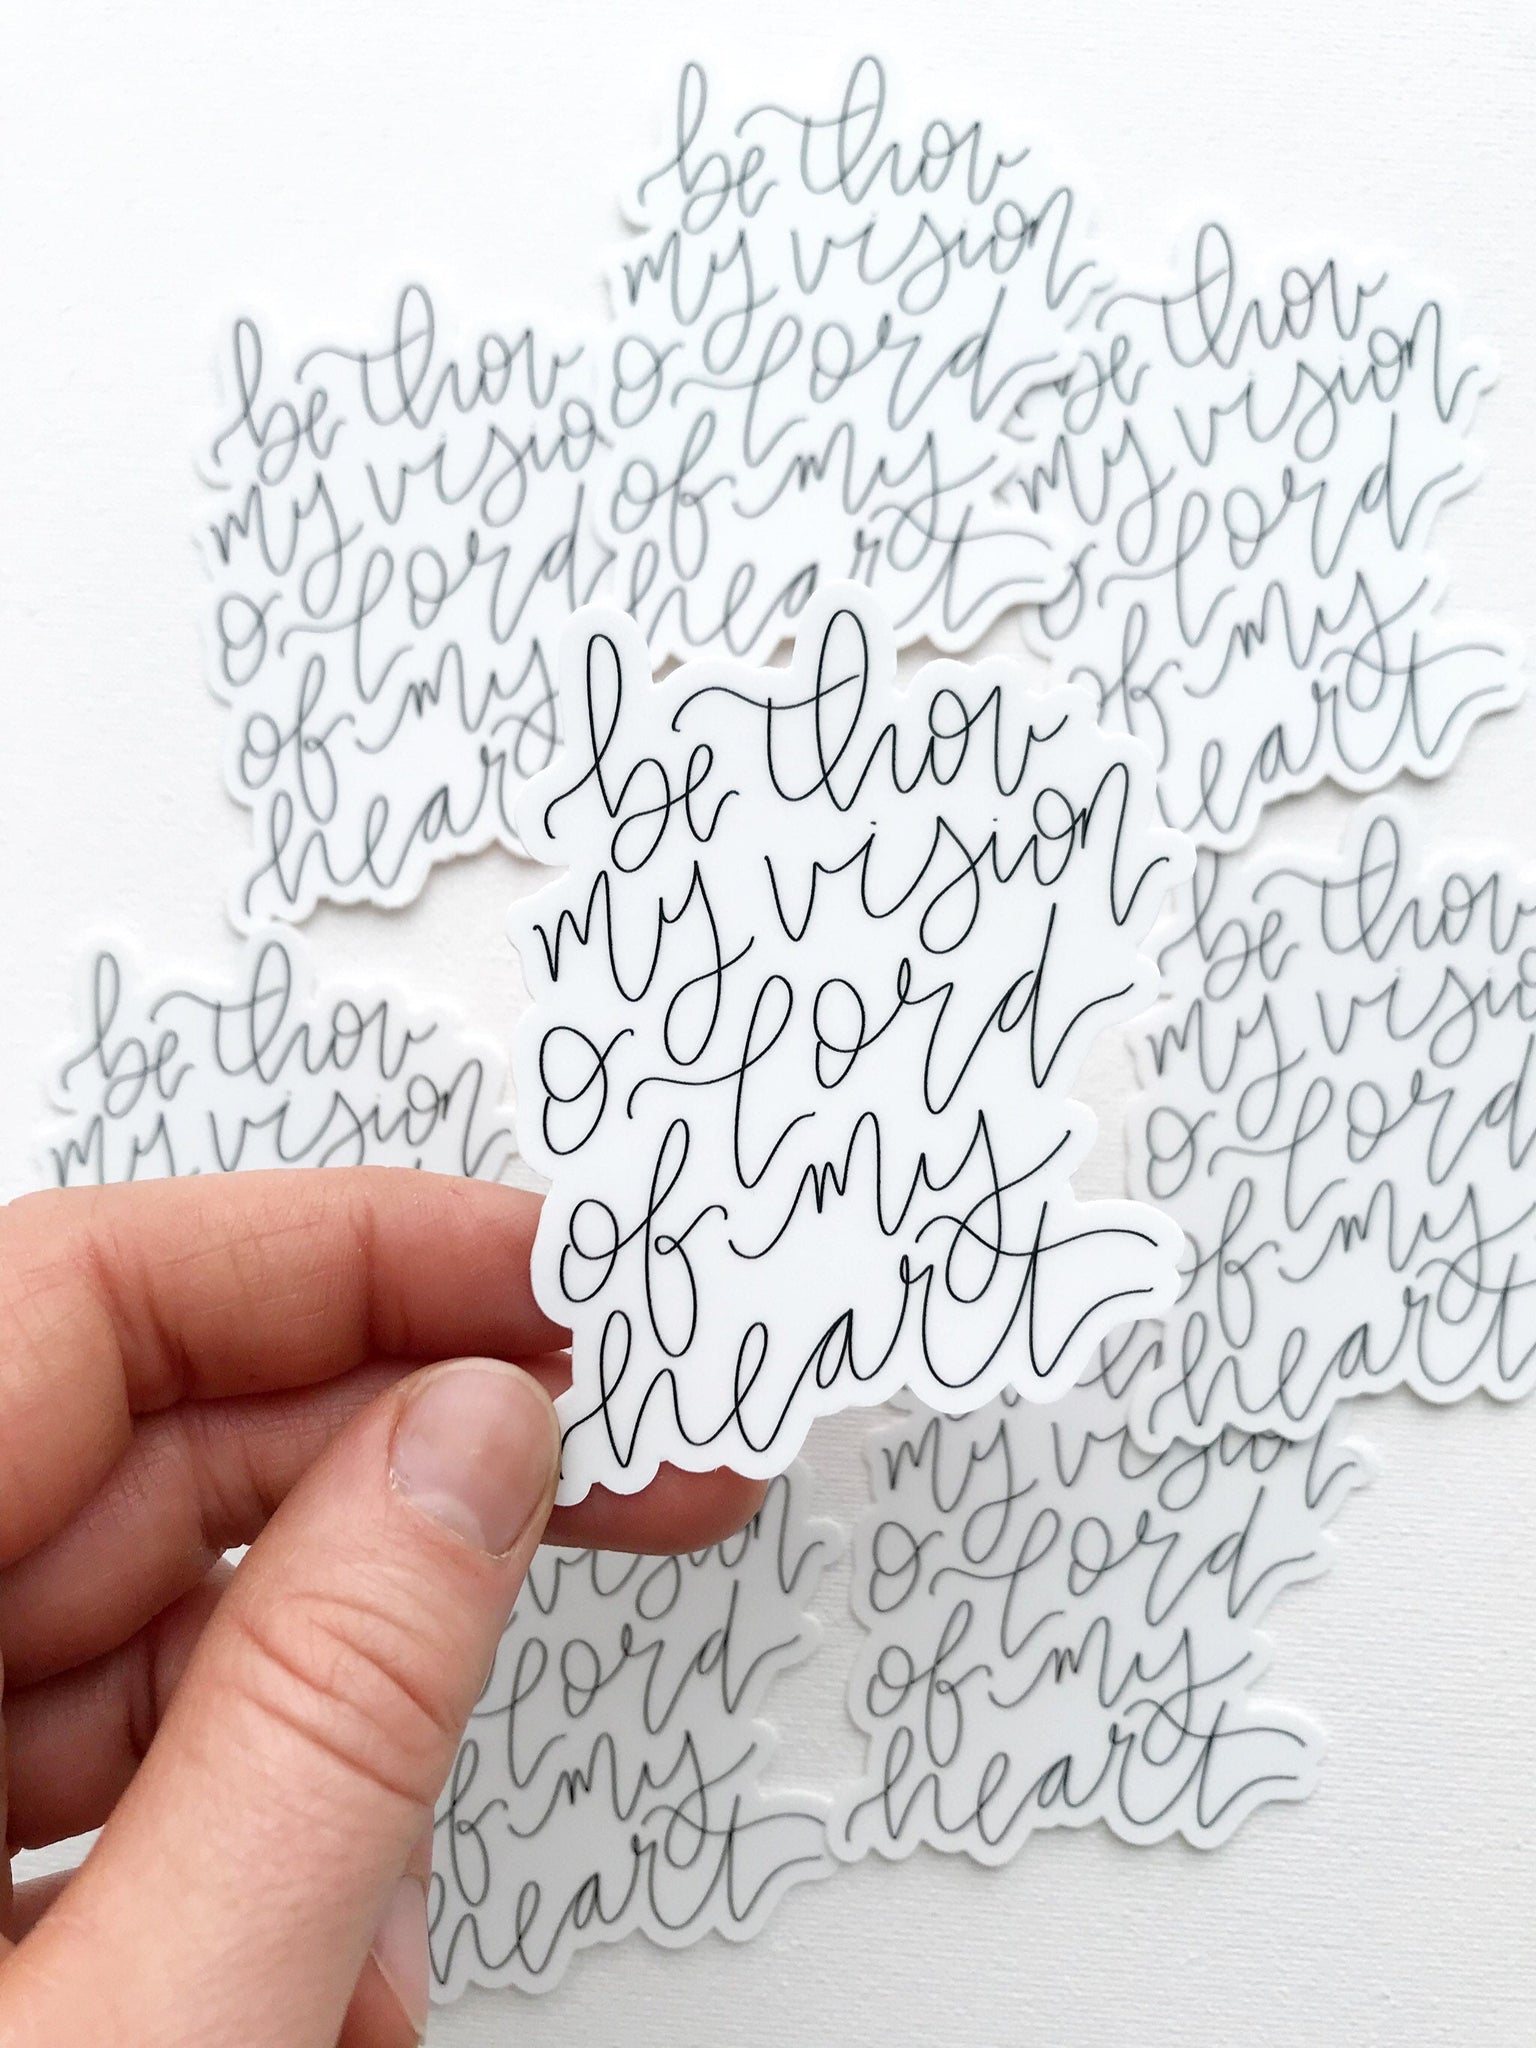 be thou
my vision
o lord
of my
heart
be thou
my vision
o lord
of my
heart
be thou
my visio
o lord
of my
hear
be thou
my vision
o lord
of my
heart
be thou
my vision
o lord
of my
heart
be thou
my vision
be thou
my vision
o lord
of my
heart
my vision
o lord
of my
heart
vision
lord
of my
heart